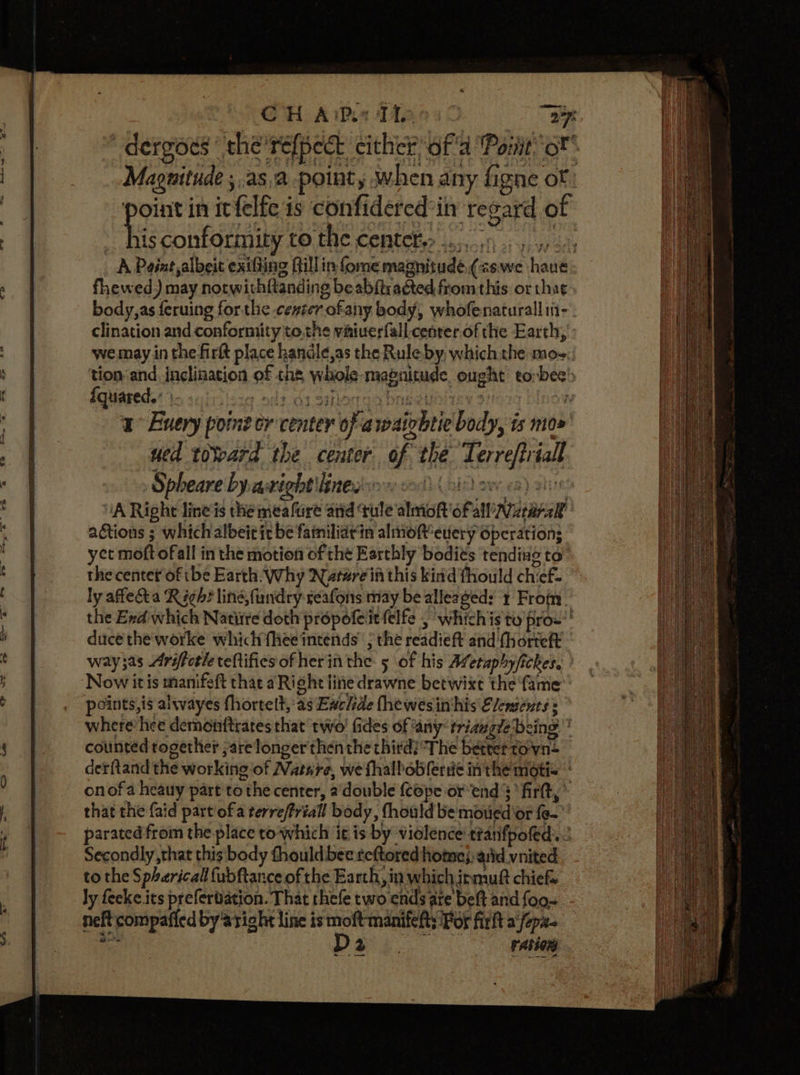 CHAP. II. 27
dergoes the respect either of a Point or
Magnitude; as a point, when any signe or
point in it selfe is considered in regard of
his conformity to the center.
A Point, albeit existing still in some magnitude (as we haue
shewed) may notwithstanding be abstracted from this or that
body, as seruing for the center of any body, whose naturall in-
clination and conformity to the vniuersall center of the Earth,
we may in the first place handle, as the Rule by which the mo-
tion and inclination of the whole magnitude ought to bee
squared.
1 Euery point or center of a waightie body, is mo-
ued toward the center of the Terrestriall
Spheare by a right line.
A Right line is the measure and rule almost of all Naturall
actions; which albeit it be familiar in almost euery operation;
yet most of all in the motion of the Earthly bodies tending to
the center of the Earth. Why Nature in this kind should chief-
ly affect a Right line, sundry reasons may be alleaged: 1 From
the End which Nature doth propose it selfe, which is to pro-
duce the worke which shee intends, the readiest and shortest
way; as Aristotle testifies of her in the 5 of his Metaphysickes.
Now it is manifest that a Right line drawne betwixt the same
points, is alwayes the shortest, as Euclide shewes in his Elements;
where hee demonstrates that two sides of any triangle being
counted together, are longer then the third: The better to vn-
derstand the working of Nature, we shall obserue in the moti-
on of a heauy part to the center, a double scope or end; first,
that the said part of a terrestriall body, should be moued or se-
parated from the place to which it is by violence transposed.
Secondly, that this body should bee restored home, and vnited
to the Sphericall substance of the Earth, in which it must chief-
ly seeke its preseruation. That these two ends are best and soo-
nest compassed by a right line is most manifest; For first a sepa-
D 2 ration